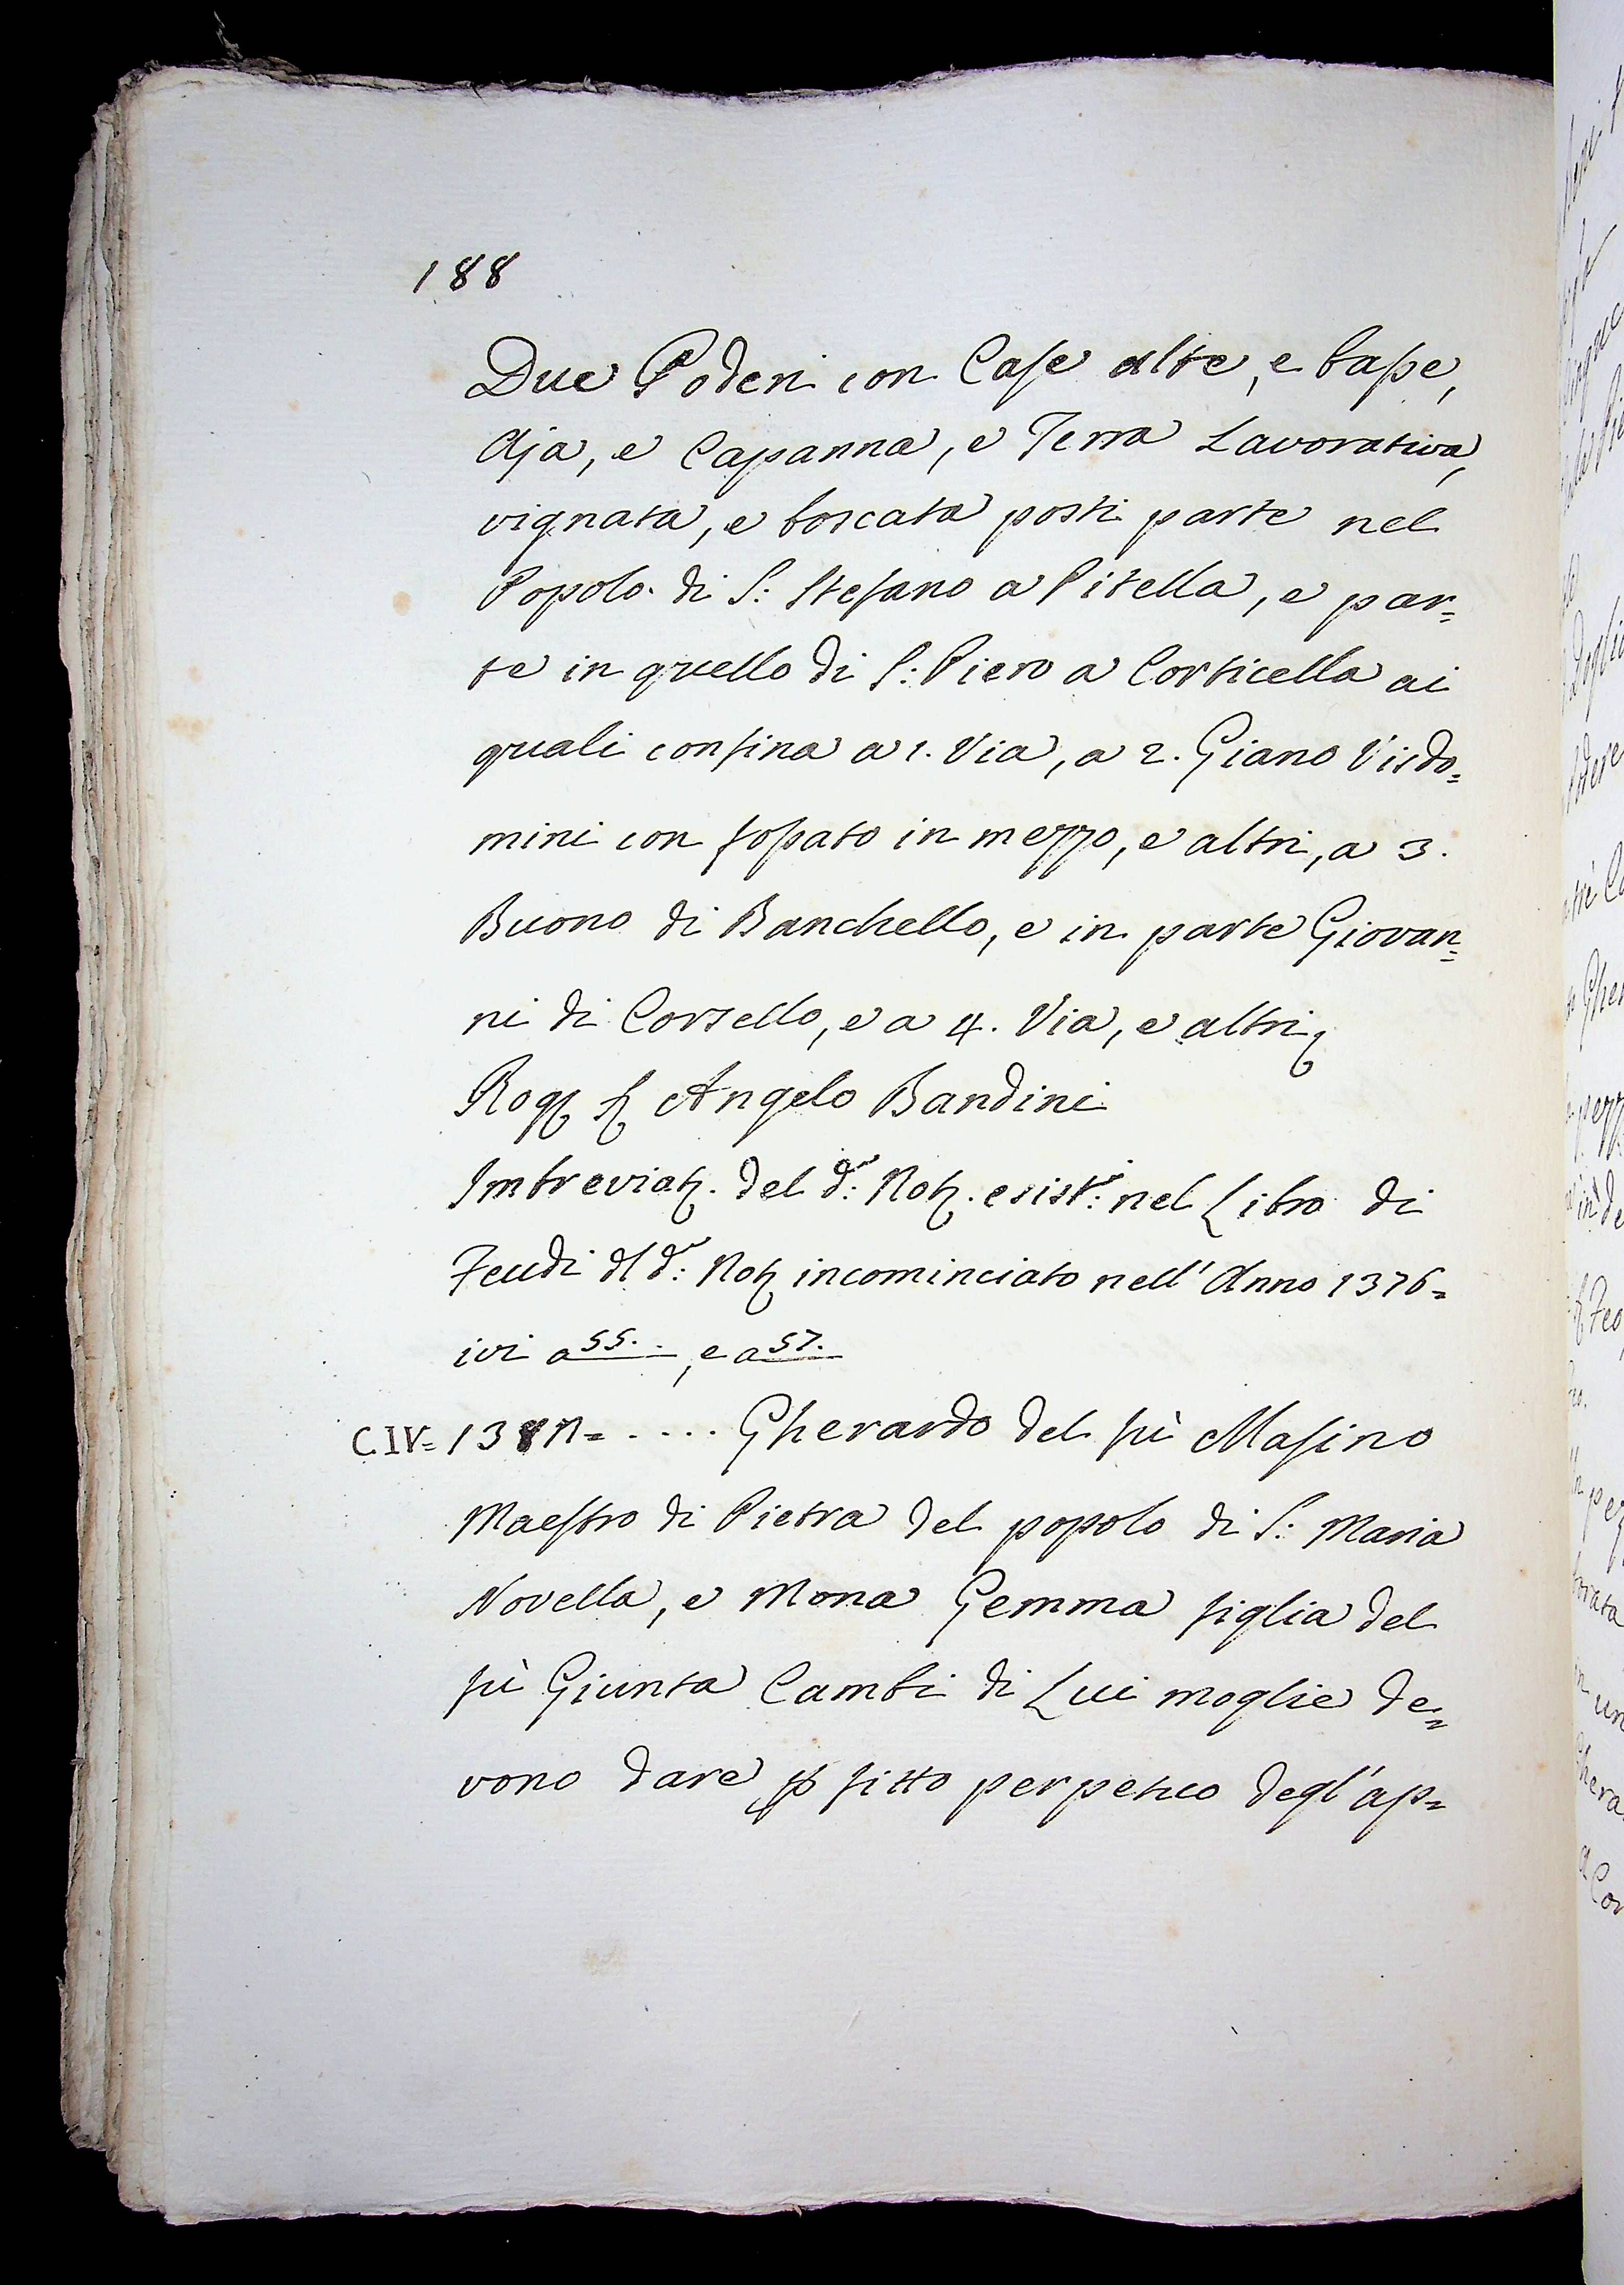 188
Due Poderi con Case alte, e basse,
Aja, e Capanna, e Terra Lavorativa,
vignata, e boscata posti parte nel
Popolo di S: Stefano a Pitella, e par=
te in quello di S: Piero a Corticella ai
quali confina a 1. Via, a 2. Giano Visdo=
mini con fossato in mezzo, e altri, a 3.
Buono di Banchello, e in parte Giovan=
ni di Corsello, e a 4. Via, e altri
Rog Angelo Bandini
Imbreviaz. del d: Not. esist: nel Libro di
Feudi dl d: Not incominciato nell' Anno 1376=
ivi a 55. , e a 57.
CIV= .... Gherardo del fù Masino
Maestro di Pietra del popolo di S: Maria
Novella, e Mona Gemma figlia del
fù Giunta Cambi di Lui moglie de=
vono dare p fitto perpetuo degl' ap=